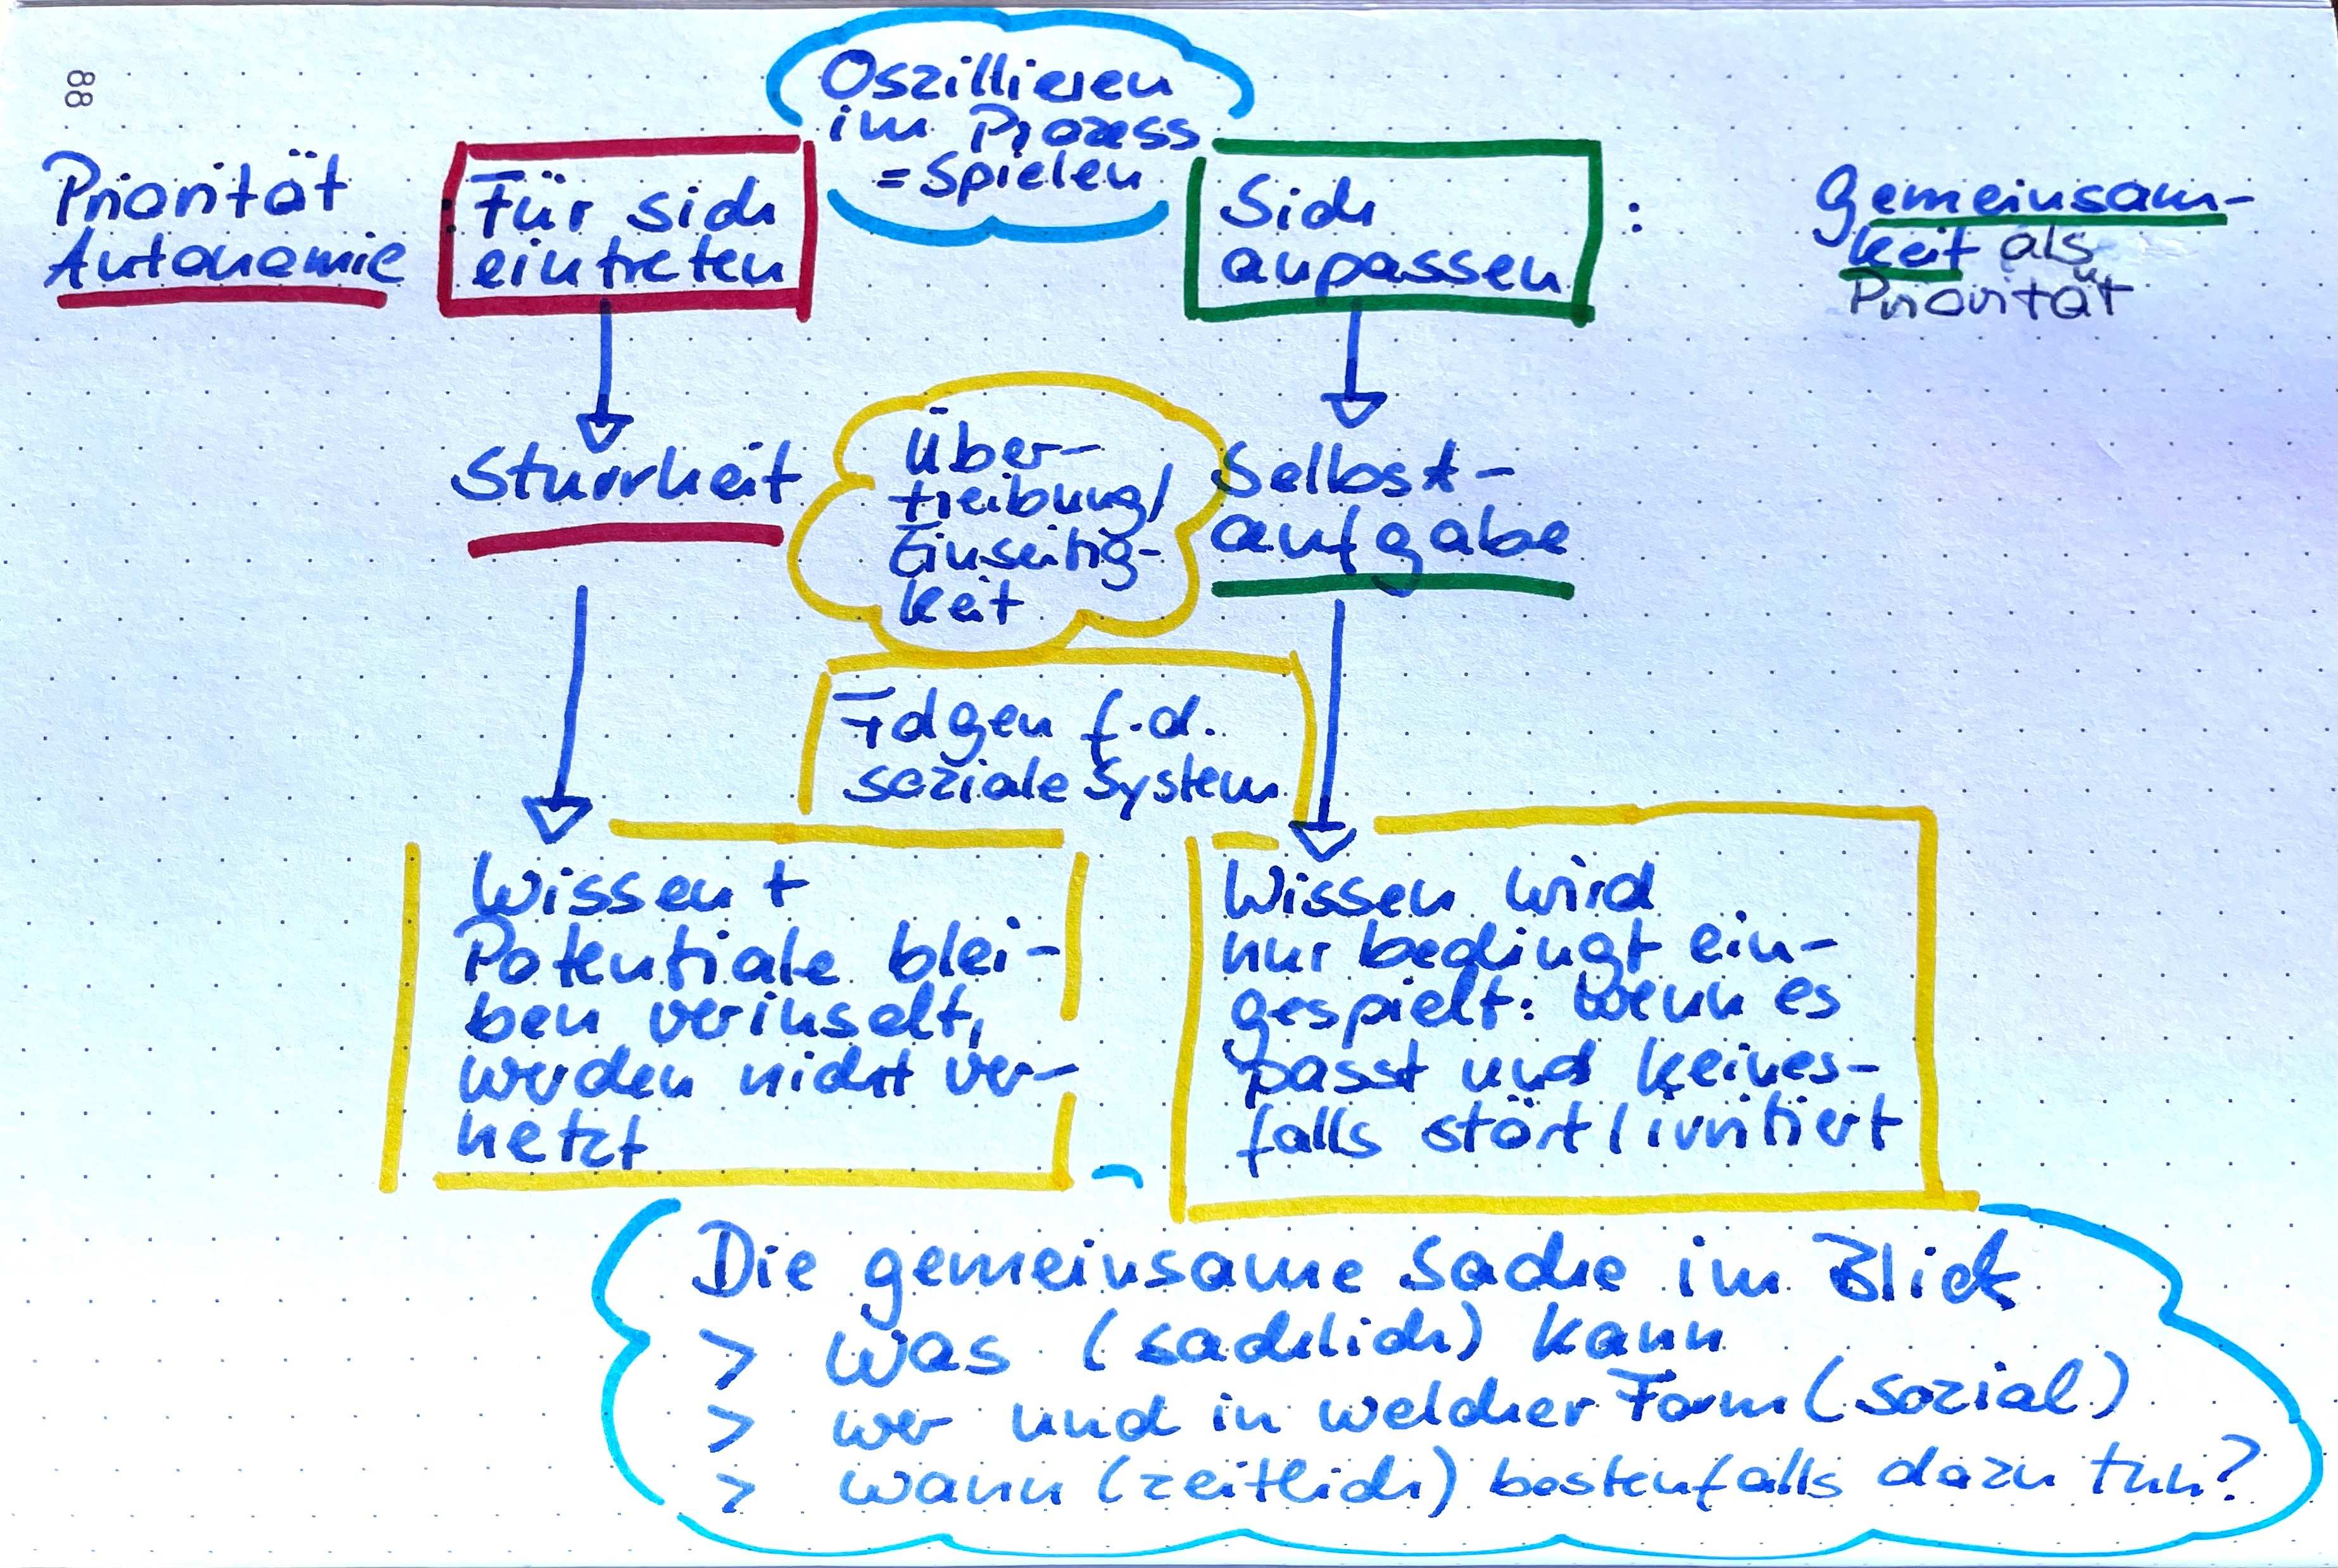 88
Oszillieren
im Prozess
= Spielen
Priorität
Autonomie
Für sich
eintreten
Sich
anpassen
:
Gemeinsam-
keit als
Priorität
Sturrheit
Über-
treibung/
Einseitig-
keit
Selbst-
aufgabe
Folgen f.d.
soziale System
Wissen +
Potentiale blei-
ben verinselt,
werden nicht ver-
netzt
Wissen wird
nur bedingt ein-
gespielt: wenn es
passt und keines-
falls stört / irritiert
Die gemeinsame Sache im Blick
> Was (sachlich) kann
> wer und in welcher Form (sozial)
> wann (zeitlich) bestenfalls dazu tun?